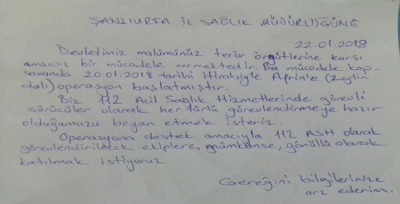 ŞANLIURFA İL SAĞLIK MÜDÜRLÜĞÜNE
22.01.2018
Devletimiz malumunuz terör örgütlerine karşı
amansız bir mücadele vermektedir. Bu mücadele kap-
samında 20.01.2018 tarihi itibariyle Afrin'e (zeytin
dalı) operasyon başlatmıştır.
Biz 112 Acil Sağlık Hizmetlerinde görevli
sürücüler olarak her türlü görevlendirmeye hazır
olduğumuzu beyan etmek isteriz.
Operasyona destek amacıyla 112 ASH olarak
görevlendirilecek ekiplere, mümkünse, gönüllü olarak
katılmak istiyoruz
Gereğini bilgilerinize
arz ederim.